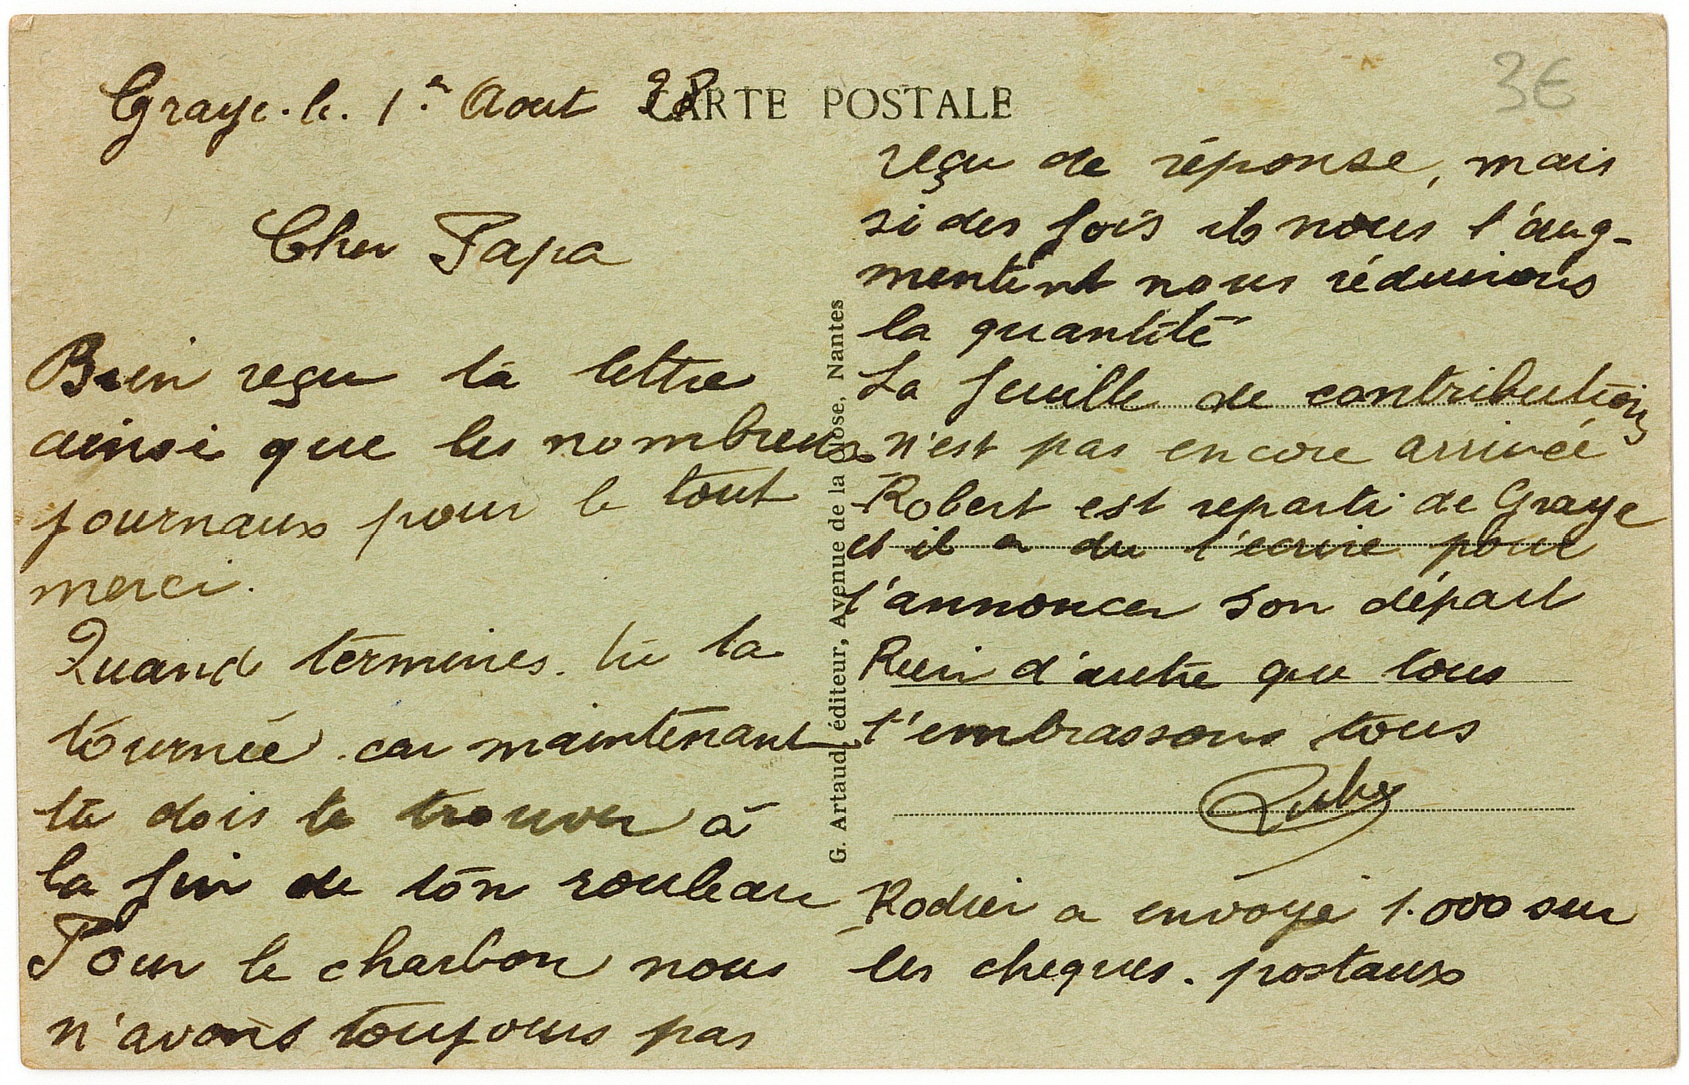 Graye. le. 1er Aout 28
CARTE POSTALE
3€
Cher Papa
Bien reçu ta lettre
ainsi que les nombreux
journaux pour le tout
merci.
Quand termines. tu ta
tournée. car maintenant
tu dois te trouver à
la fin de ton rouleau
Pour le charbon nous
n'avons toujours pas
G. Artaud, éditeur, Avenue de la Close, Nantes
reçu de réponse, mais
si des fois ils nous l'aug-
mentent nous réduirions
la quantité
La feuille de contributions
n'est pas encore arrivée
Robert est reparti de Graye
et il a du t'écrire pour
t'annoncer son départ
Rien d'autre que tous
t'embrassons tous
Rodier a envoyé 1.000 sur
les cheques. postaux